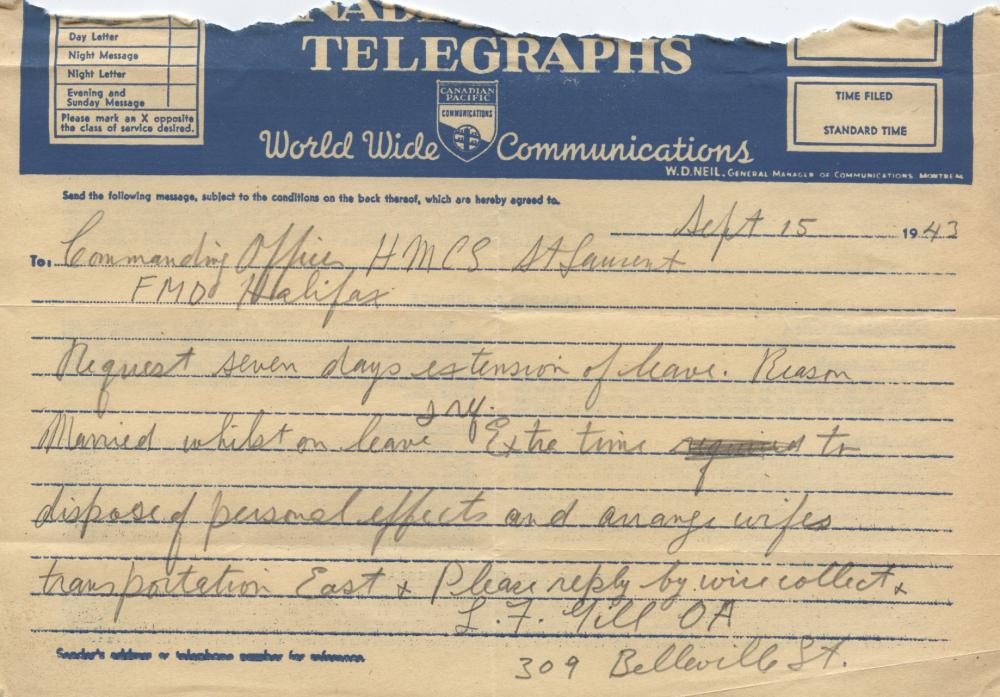 Day Letter
Night Message
Night Letter
Evening and
Sunday Message
Please mark an X opposite
the class of service desired.
TELEGRAPHS
CANADIAN
PACIFIC
COMMUNICATIONS
World Wide Communications
TIME FILED
STANDARD TIME
W.D. NEIL, GENERAL MANAGER OF COMMUNICATIONS MONTREAL
Send the following message, subject to the conditions on the back thereof, which are hereby agreed to.
Sept 15 1943
To: Commanding Officer HMCS St Laurent
FMO Halifax
Request seven days extension of leave. Reason
Married whilst on leave Extra time required to
dispose of personal effects and arrange wifes
transportation East x Please reply by wire collect x
L. F. Gill OA
309 Belleville St.
Sender's address or telephone number for reference